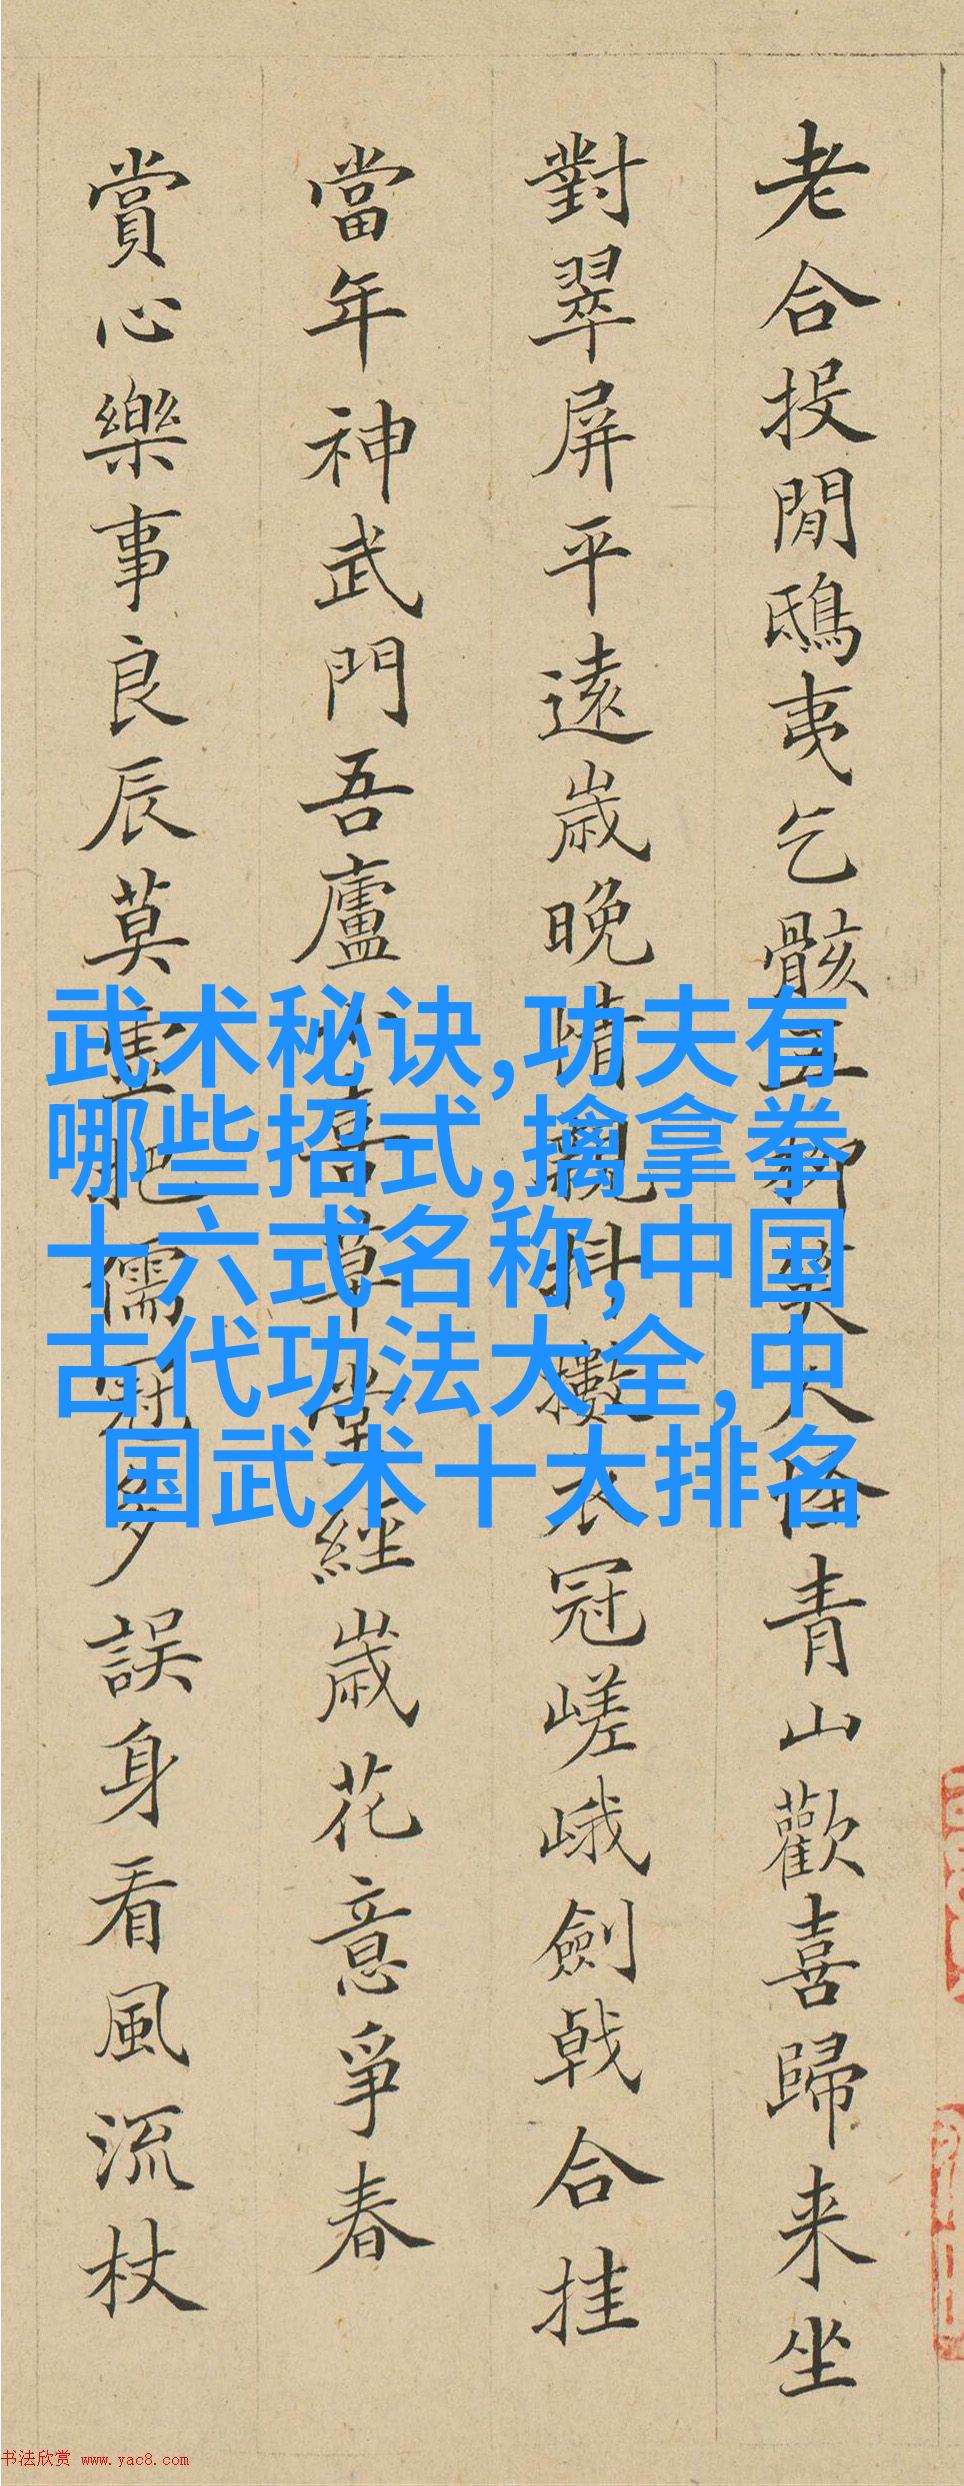 老合投閒鴟夷乞骸五柳笑人青山歡喜歸来坐
對翠屏平遠歲晚晴親抖擻衣冠嵯峨劍戟合挂
當年神武門吾廬喜草堂經歲花意爭春
賞心樂事良辰莫儒冠多誤身看風流杖
武术秘诀,功夫有
哪些招式,擒拿拳
十六式名称,中国
古代功法大全,中
国武术十大排名
书法欣赏 www.yac8.com